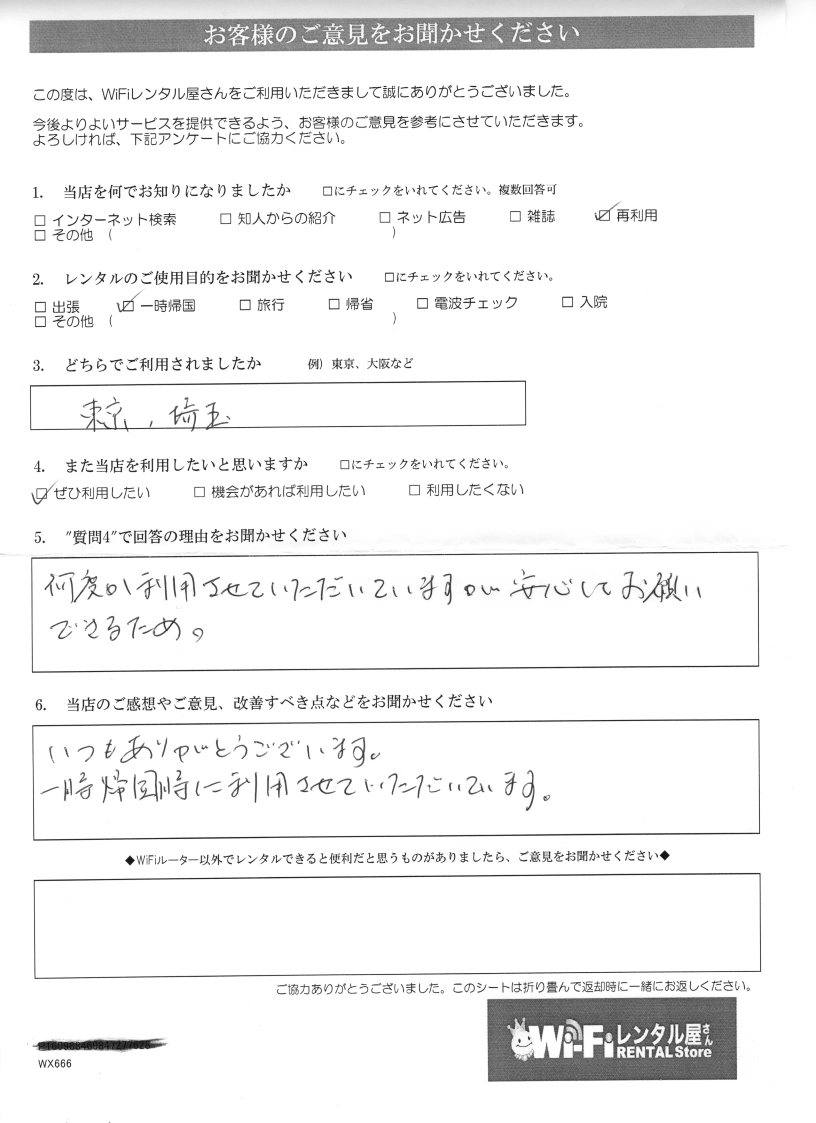 お客様のご意見をお聞かせください
この度は、WiFiレンタル屋さんをご利用いただきまして誠にありがとうございました。
今後よりよいサービスを提供できるよう、お客様のご意見を参考にさせていただきます。
よろしければ、下記アンケートにご協力ください。
1. 当店を何でお知りになりましたか □にチェックをいれてください。複数回答可
□ インターネット検索 □ 知人からの紹介 □ ネット広告 □ 雑誌 ☑ 再利用
□ その他 ( )
2. レンタルのご使用目的をお聞かせください □にチェックをいれてください。
□ 出張 ☑ 一時帰国 □ 旅行 □ 帰省 □ 電波チェック □ 入院
□ その他 ( )
3. どちらでご利用されましたか 例）東京、大阪など
東京、埼玉
4. また当店を利用したいと思いますか □にチェックをいれてください。
☑ ぜひ利用したい □ 機会があれば利用したい □ 利用したくない
5. "質問4"で回答の理由をお聞かせください
何度か利用させていただいていますが安心してお願い
できるため。
6. 当店のご感想やご意見、改善すべき点などをお聞かせください
いつもありがとうございます。
一時帰国時に利用させていただいています。
◆WiFiルーター以外でレンタルできると便利だと思うものがありましたら、ご意見をお聞かせください◆
ご協力ありがとうございました。このシートは折り畳んで返却時に一緒にお返しください。
WX666
Wi-Fiレンタル屋さん
RENTAL Store